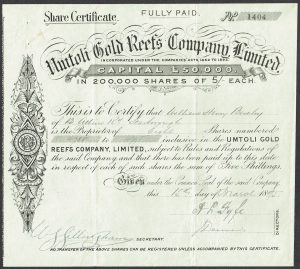 Share Certificate.
FULLY PAID.
No. 1404
Umtoli Gold Reefs Company, Limited.
INCORPORATED UNDER THE COMPANIES ACTS, 1862 TO 1893.
CAPITAL £50,000,
IN 200,000 SHARES OF 5/- EACH.
This is to Certify that William Henry
of
is the Proprietor of Shares numbered
to inclusive in the UMTOLI GOLD
REEFS COMPANY, LIMITED, subject to Rules and Regulations of
the said Company and that there has been paid up to this date
in respect of each of such shares the sum of Five Shillings.
Given under the Common Seal of the said Company
this day of 189
SECRETARY.
DIRECTORS.
NO TRANSFER OF THE ABOVE SHARES CAN BE REGISTERED UNLESS ACCOMPANIED BY THIS CERTIFICATE.